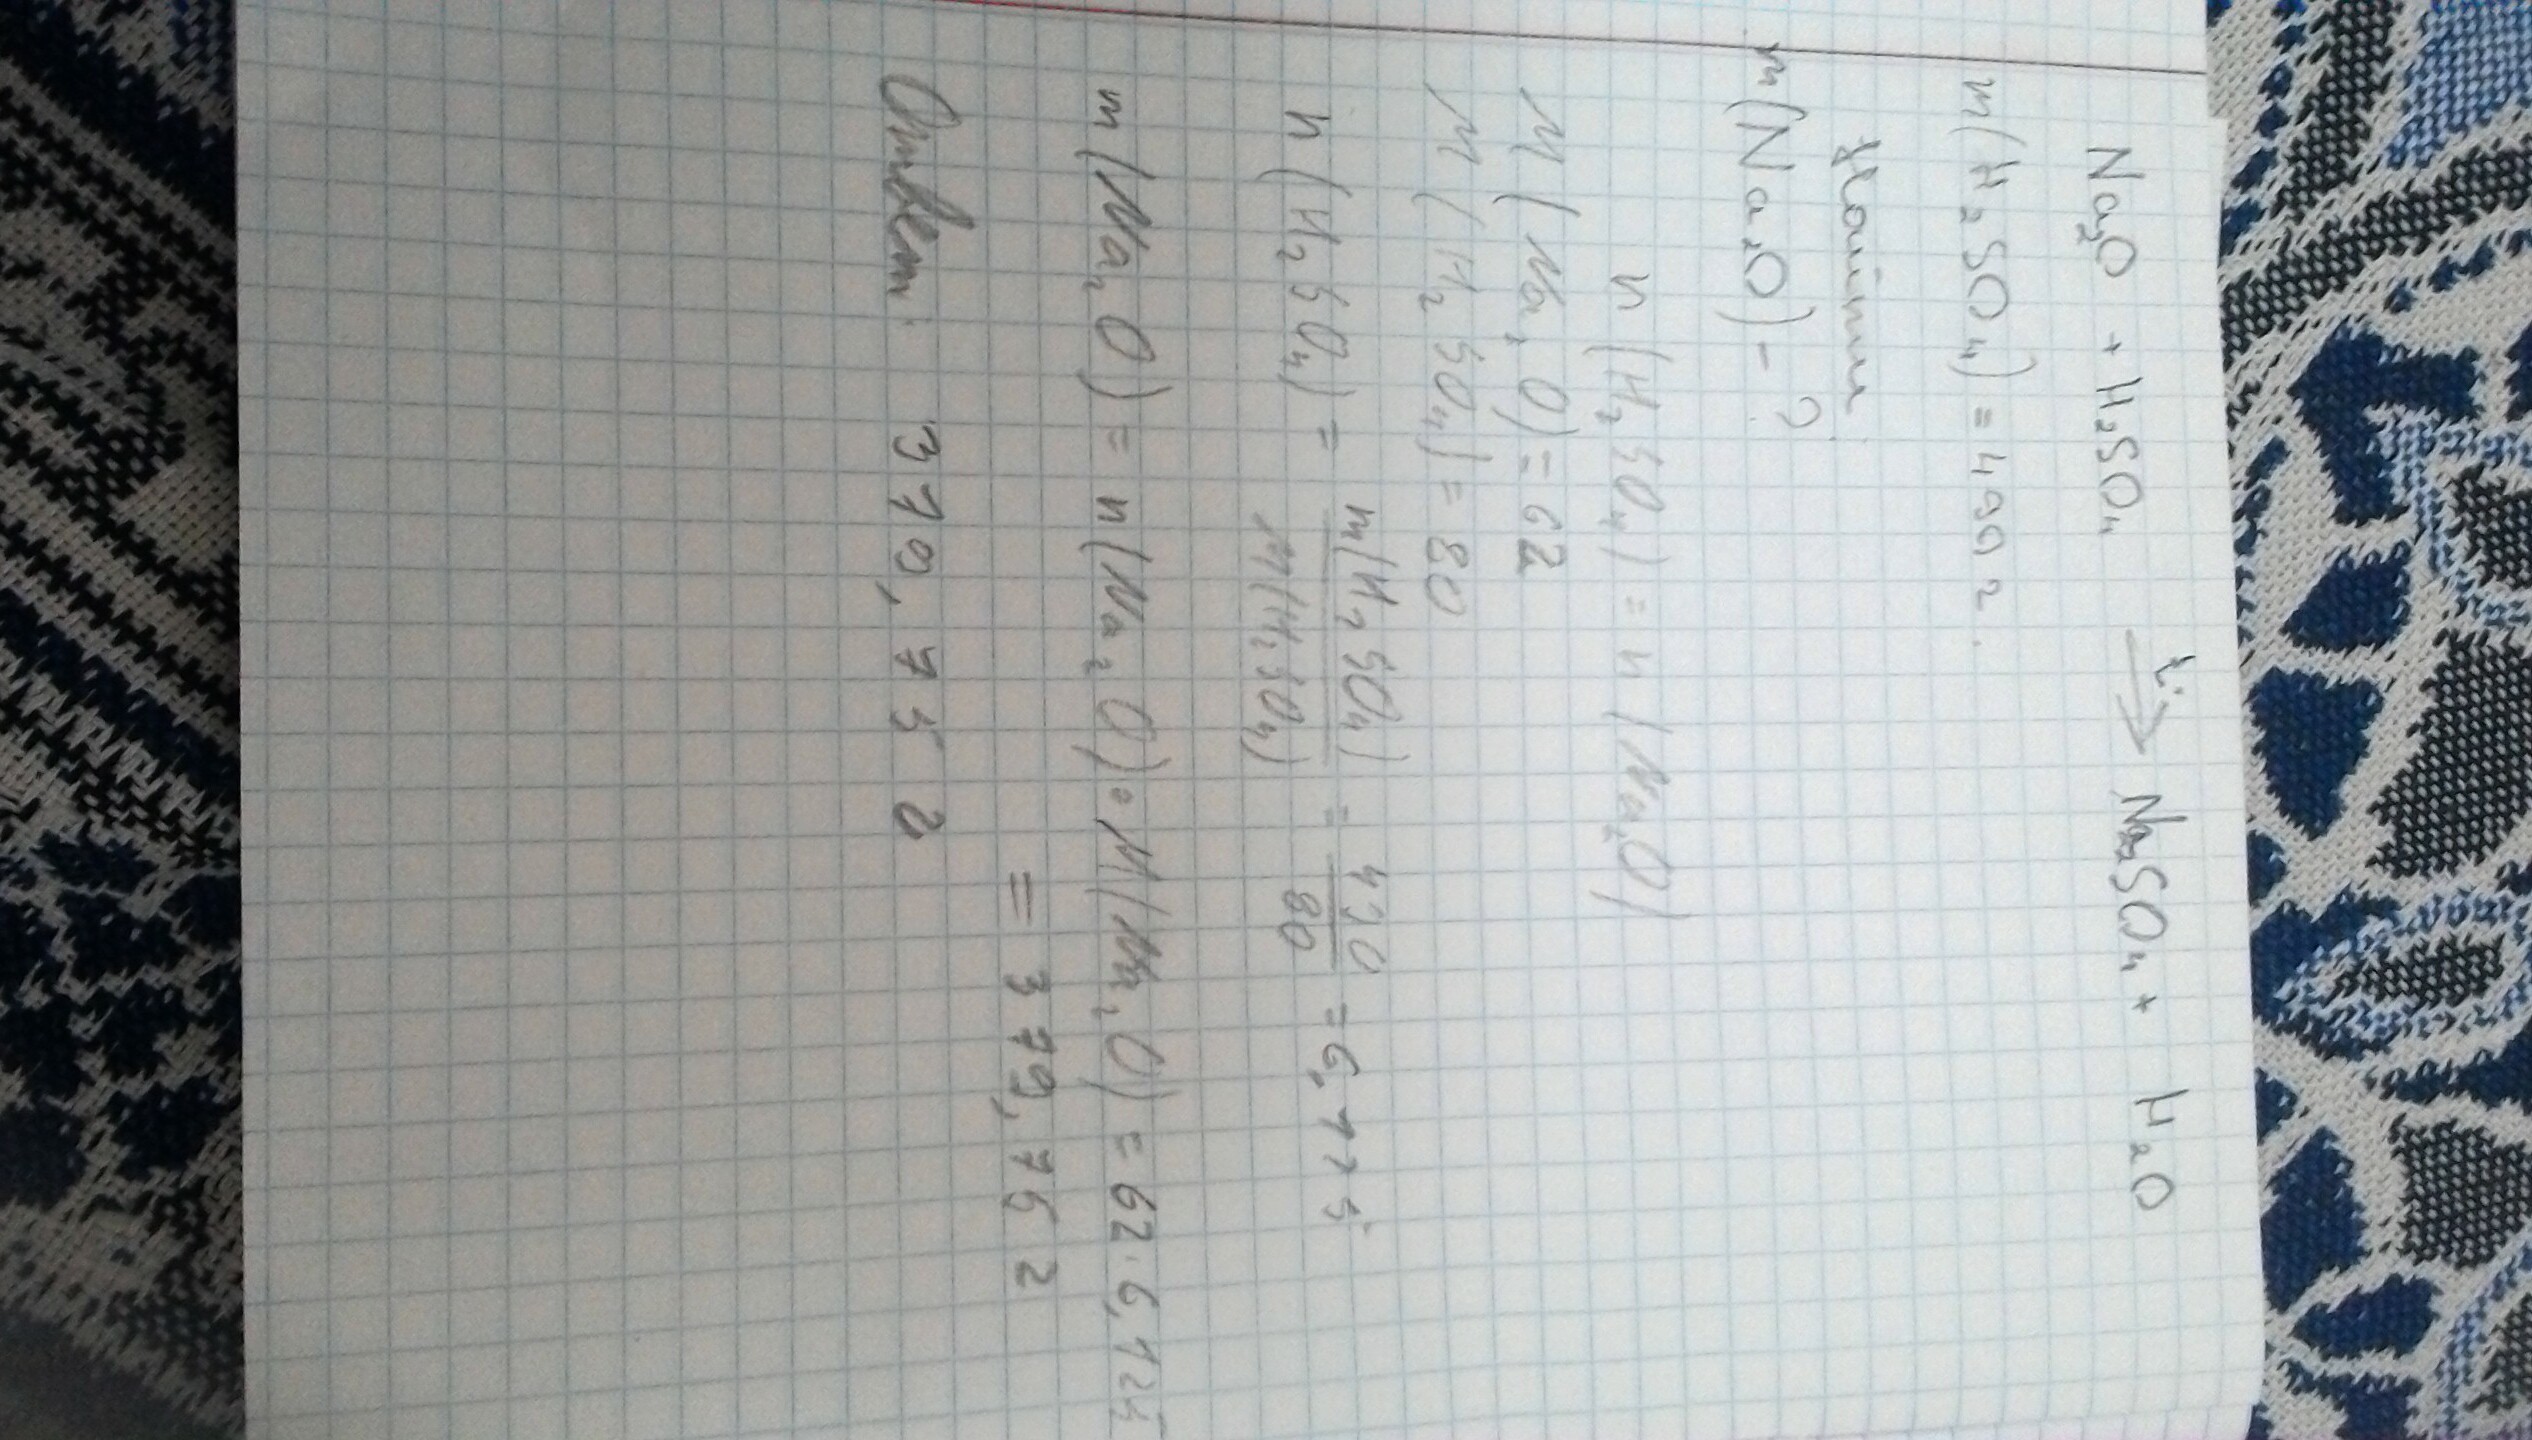 Na₂O + H₂SO₄ →t° Na₂SO₄ + H₂O
m(H₂SO₄) = 490 г.
Найти
m(Na₂O) - ?
n(H₂SO₄) = n(Na₂O)
M(Na₂O) = 62
M(H₂SO₄) = 80
n(H₂SO₄) = m(H₂SO₄)/M(H₂SO₄) = 490/80 = 6,125
m(Na₂O) = n(Na₂O) · M(Na₂O) = 62 · 6,125
= 379,75 г
Ответ: 379,75 г